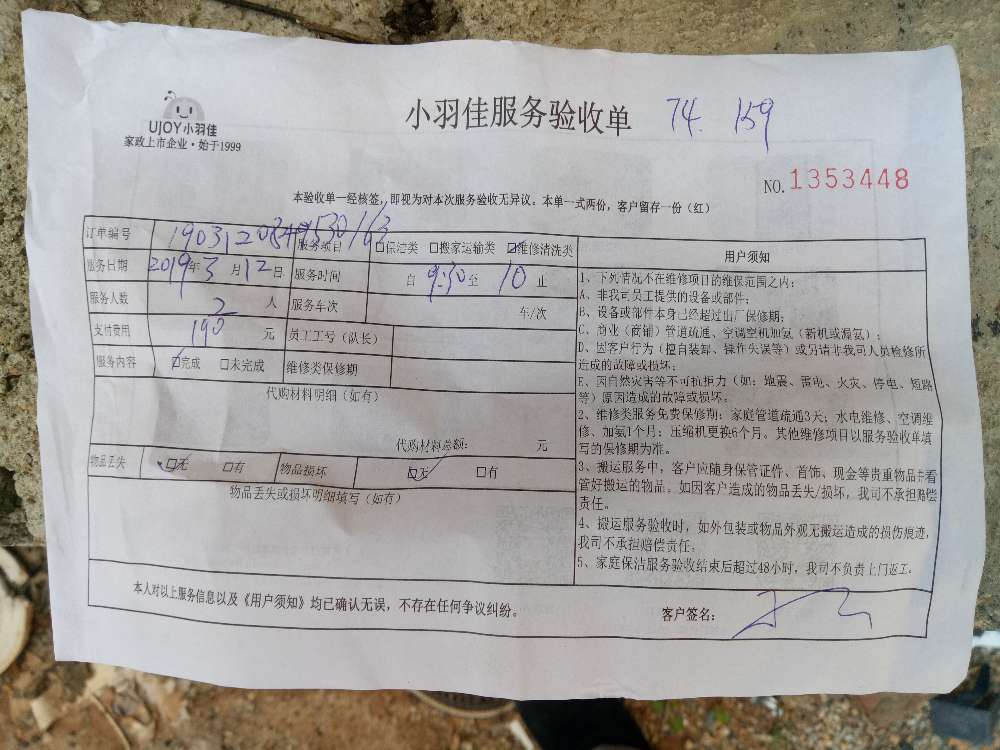 UJOY小羽佳
家政上市企业·始于1999
小羽佳服务验收单 74. 159
NO.1353448
本验收单一经核签，即视为对本次服务验收无异议。本单一式两份，客户留存一份（红）
订单编号 服务项目 □保洁类 □搬家运输类 ☑维修清洗类
服务日期 2019年3月12日 服务时间 自 9:30 至 10 止
服务人数 2 人 服务车次 车/次
支付费用 190 元 员工工号（队长）
服务内容 ☑完成 □未完成 维修类保修期
代购材料明细（如有）
代购材料总额： 元
物品丢失 ☑无 □有 物品损坏 ☑无 □有
物品丢失或损坏明细填写（如有）
用户须知
1、下列情况不在维修项目的维保范围之内：
A、非我司员工提供的设备或部件；
B、设备或部件本身已经超过出厂保修期；
C、商业（商铺）管道疏通、空调空机加氨（新机或漏氨）；
D、因客户行为（擅自装卸、操作失误等）或另请非我司人员检修所
造成的故障或损坏；
E、因自然灾害等不可抗拒力（如：地震、雷电、火灾、停电、短路
等）原因造成的故障或损坏。
2、维修类服务免费保修期：家庭管道疏通3天；水电维修、空调维
修、加氨1个月；压缩机更换6个月。其他维修项目以服务验收单填
写的保修期为准。
3、搬运服务中，客户应随身保管证件、首饰、现金等贵重物品并看
管好搬运的物品。如因客户造成的物品丢失/损坏，我司不承担赔偿
责任。
4、搬运服务验收时，如外包装或物品外观无搬运造成的损伤痕迹，
我司不承担赔偿责任。
5、家庭保洁服务验收结束后超过48小时，我司不负责上门返工。
本人对以上服务信息以及《用户须知》均已确认无误，不存在任何争议纠纷。
客户签名：